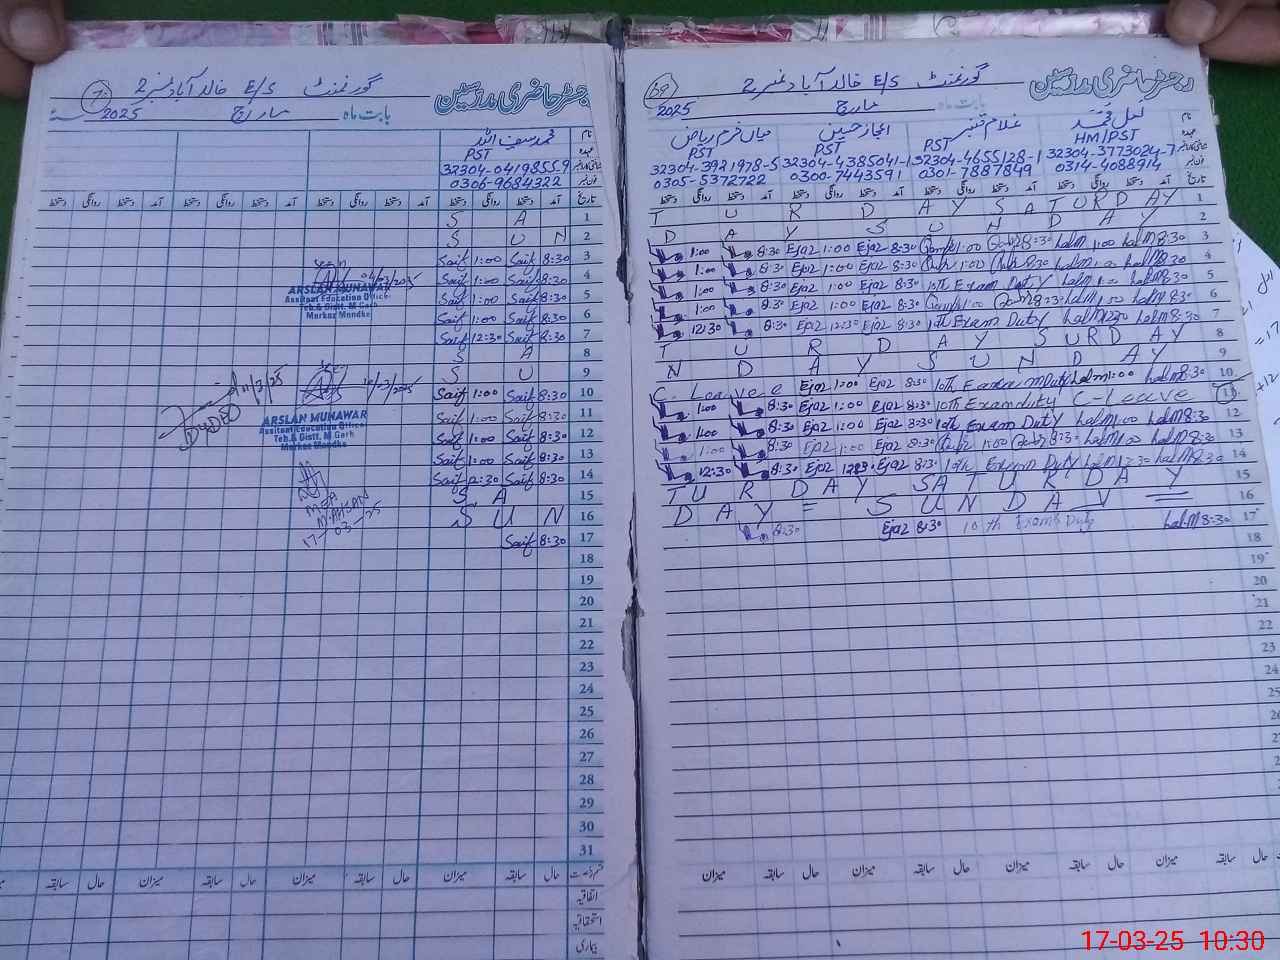 رجسٹر حاضری مدرسین
گورنمنٹ E/S خالد آباد نمبر 2
69
بابت ماہ مارچ 2025
لعل محمد غلام قنبر اعجاز حسین میاں خرم ریاض
HM/PST PST PST PST
32304-3773024-7 32304-4655128-1 32304-4385041-1 32304-3921978-5
0314-4088914 0301-7887849 0300-7443591 0305-5372722
تاریخ آمد دستخط روانگی دستخط آمد دستخط روانگی دستخط آمد دستخط روانگی دستخط آمد دستخط روانگی دستخط
T U R D A Y S A T U R D A Y 1
D A Y S U N D A Y 2
1:00 8:30 Ejaz 1:00 Ejaz 8:30 1:00 8:30 lalm 1:00 lalm 8:30 3
1:00 8:30 Ejaz 1:00 Ejaz 8:30 1:00 8:30 lalm 1:00 lalm 8:30 4
1:00 8:30 Ejaz 1:00 Ejaz 8:30 10th Exam Duty lalm 1:00 lalm 8:30 5
1:00 8:30 Ejaz 1:00 Ejaz 8:30 1:00 8:30 lalm 1:00 lalm 8:30 6
12:30 8:30 Ejaz 12:30 Ejaz 8:30 10th Exam Duty lalm 12:30 lalm 8:30 7
T U R D A Y S U R D A Y 8
N D A Y S U N D A Y 9
C. Leave Ejaz 1:00 Ejaz 8:30 10th Exam Duty lalm 1:00 lalm 8:30 10
1:00 8:30 Ejaz 1:00 Ejaz 8:30 10th Exam duty C-Leave 11
1:00 8:30 Ejaz 1:00 Ejaz 8:30 10th Exam Duty lalm 1:00 lalm 8:30 12
1:00 8:30 Ejaz 1:00 Ejaz 8:30 1:00 8:30 lalm 1:00 lalm 8:30 13
12:30 8:30 Ejaz 12:30 Ejaz 8:30 10th Exam Duty lalm 12:30 lalm 8:30 14
T U R D A Y S A T U R D A Y 15
D A Y = S U N D A Y = 16
8:30 Ejaz 8:30 10th Exam Duty lalm 8:30 17
18
19
20
21
22
23
24
25
26
سابقہ حال میزان سابقہ حال میزان سابقہ حال میزان سابقہ حال میزان
رجسٹر حاضری مدرسین
گورنمنٹ E/S خالد آباد نمبر 2
7
بابت ماہ مارچ 2025
محمد سیف اللہ
PST
32304-0419855-9
0306-9684322
نام
عہدہ
تاریخ آمد دستخط روانگی دستخط آمد دستخط روانگی دستخط آمد دستخط روانگی دستخط آمد دستخط روانگی دستخط
S A 1
S U N 2
Saif 1:00 Saif 8:30 3
Saif 1:00 Saif 8:30 4
Saif 1:00 Saif 8:30 5
Saif 1:00 Saif 8:30 6
Saif 12:30 Saif 8:30 7
S A 8
S U 9
Saif 1:00 Saif 8:30 10
Saif 1:00 Saif 8:30 11
Saif 1:00 Saif 8:30 12
Saif 1:00 Saif 8:30 13
Saif 12:30 Saif 8:30 14
S A 15
S U N 16
Saif 8:30 17
18
19
20
21
22
23
24
25
26
27
28
29
30
31
ARSLAN MUNAWAR
Assitant Education Officer
Teh.& Distt. M.Garh
Markaz Mondka
11/3/25
DyDEO
ARSLAN MUNAWAR
Assitant Education Officer
Teh.& Distt. M.Garh
Markaz Mondka
MEA
M.AHSAN
17-03-25
سابقہ حال میزان سابقہ حال میزان سابقہ حال میزان سابقہ حال
اتفاقیہ
استحقاقیہ
بیماری
17-03-25 10:30